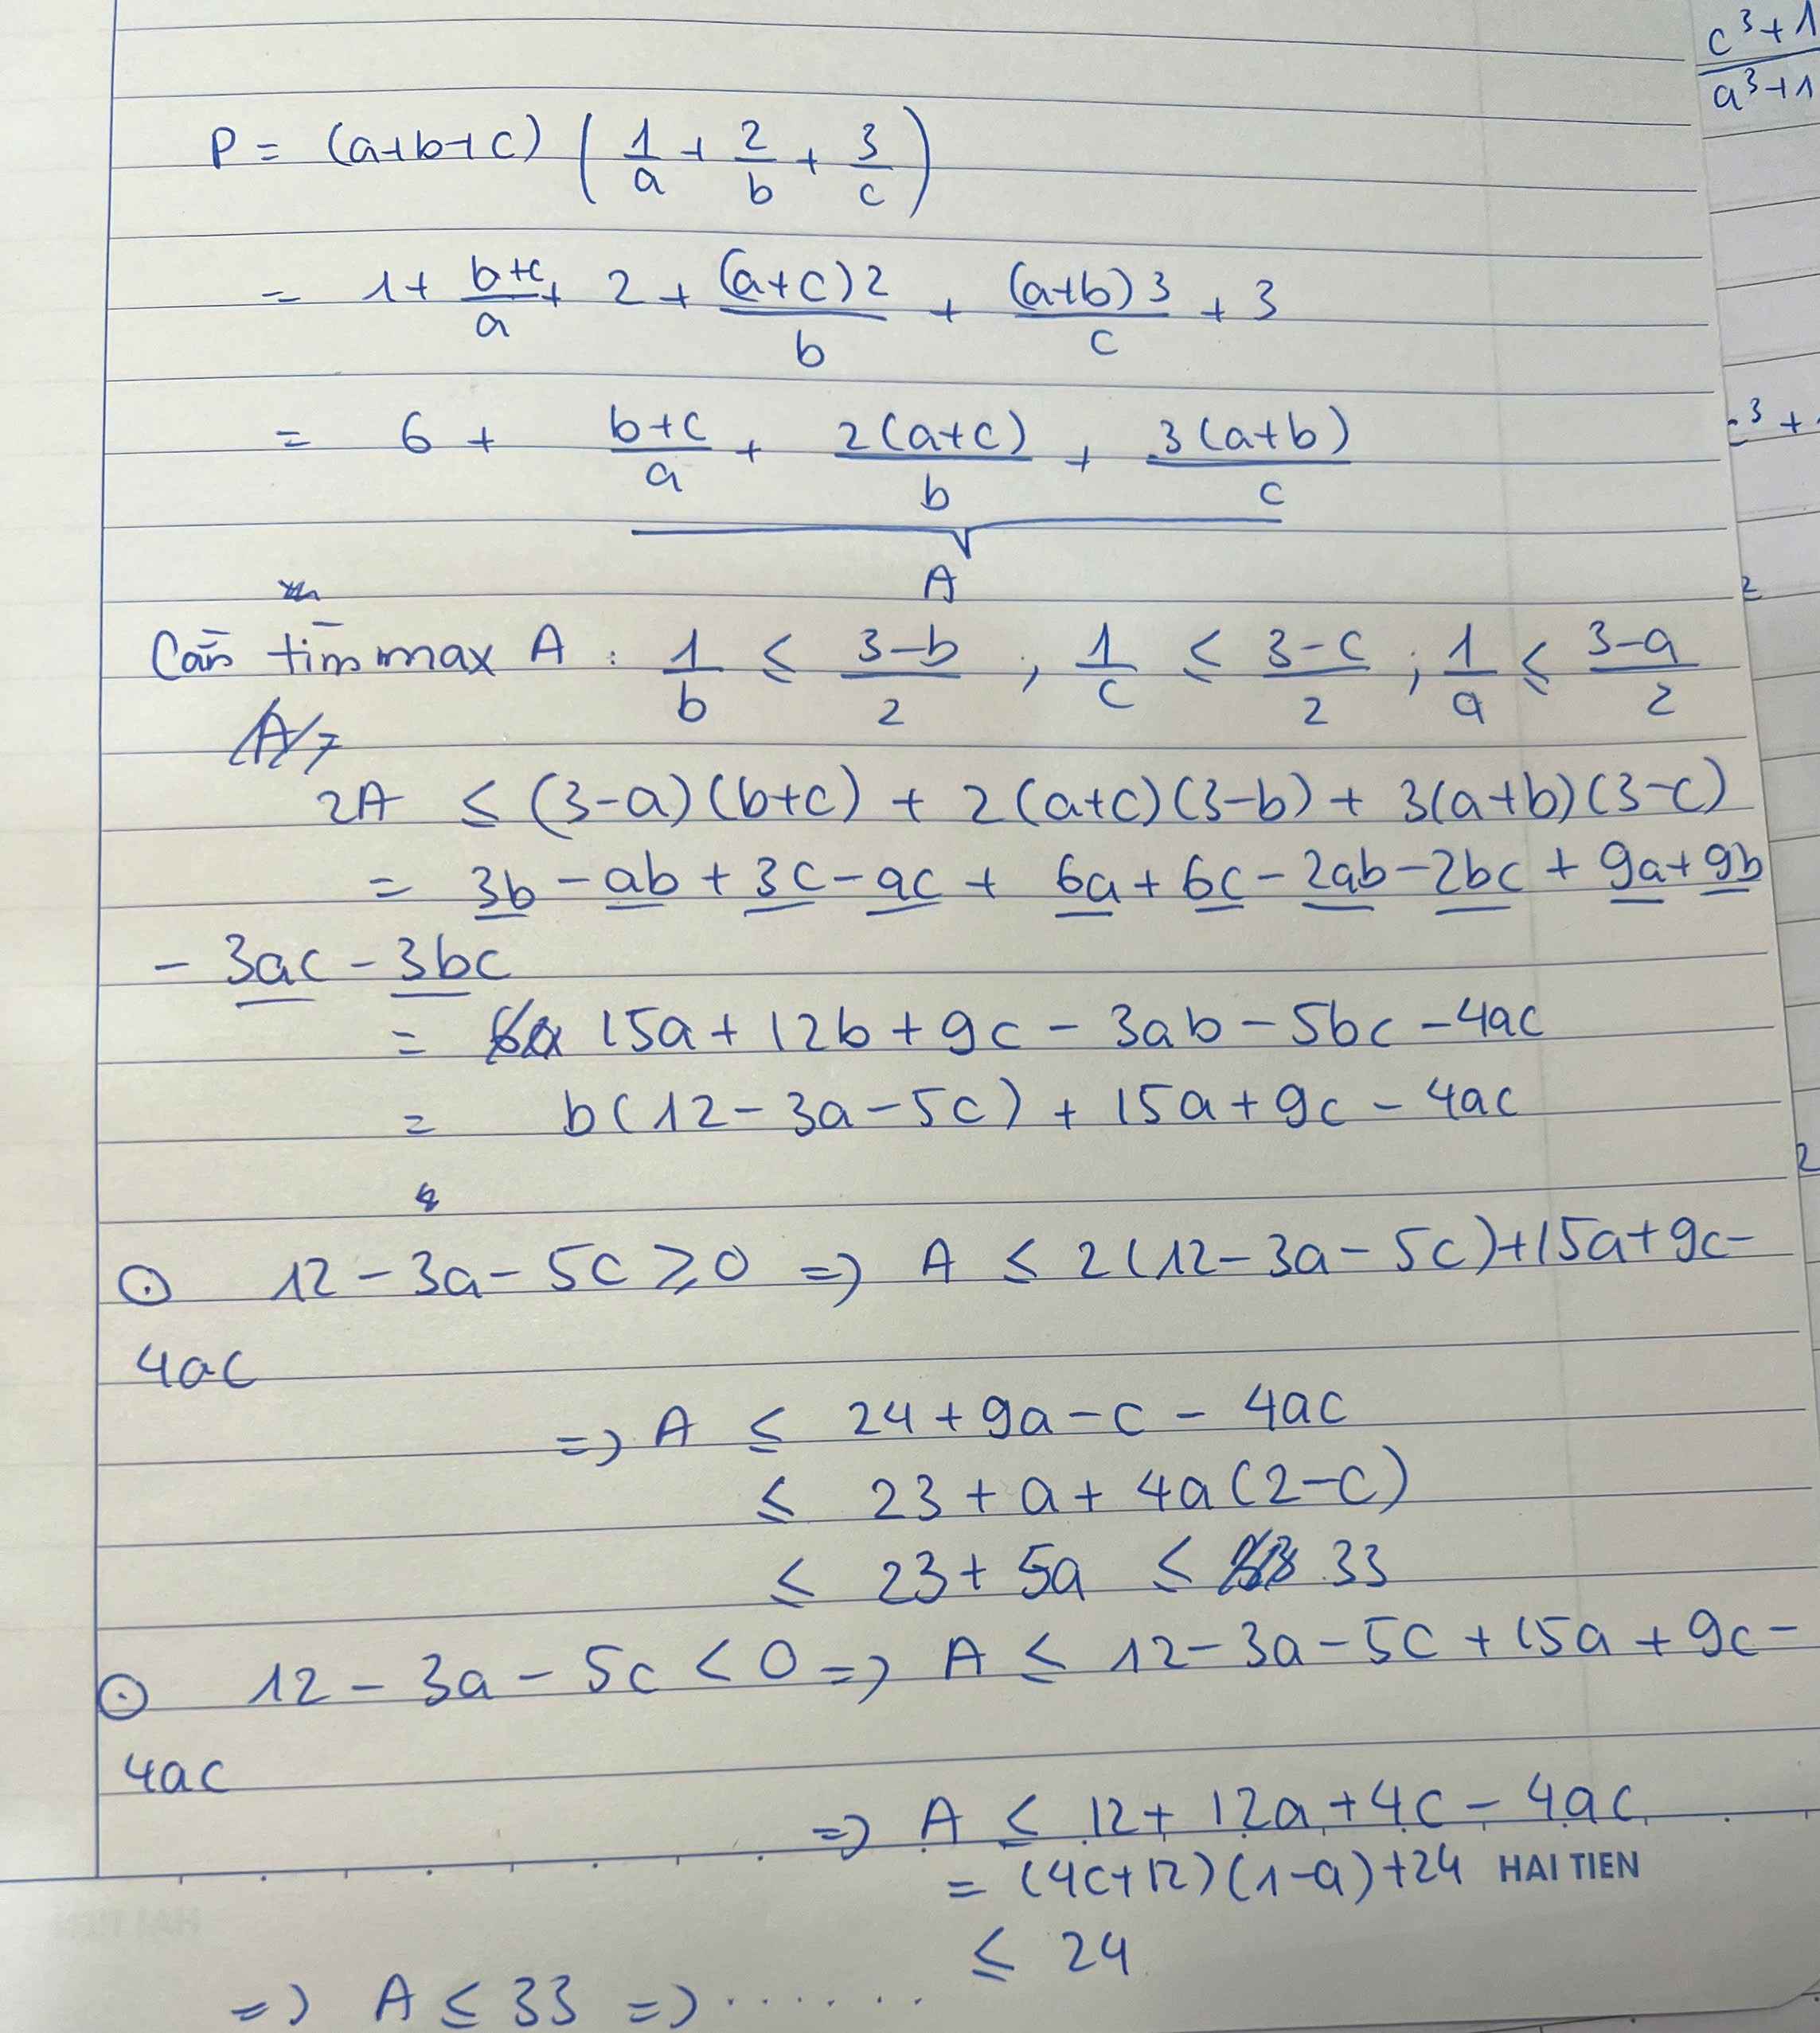 c³+1
a³+1
P = (a+b+c) (1/a + 2/b + 3/c)
= 1 + (b+c)/a + 2 + (a+c)2/b + (a+b)3/c + 3
= 6 + (b+c)/a + 2(a+c)/b + 3(a+b)/c
³ +
A
2
Cần tìm max A : 1/b ≤ (3-b)/2 ; 1/c ≤ (3-c)/2 ; 1/a ≤ (3-a)/2
2A ≤ (3-a)(b+c) + 2(a+c)(3-b) + 3(a+b)(3-c)
= 3b - ab + 3c - ac + 6a + 6c - 2ab - 2bc + 9a + 9b
- 3ac - 3bc
= 15a + 12b + 9c - 3ab - 5bc - 4ac
= b(12 - 3a - 5c) + 15a + 9c - 4ac
2
⊙ 12 - 3a - 5c ≥ 0 => A ≤ 2(12 - 3a - 5c) + 15a + 9c -
4ac
=> A ≤ 24 + 9a - c - 4ac
≤ 23 + a + 4a(2-c)
≤ 23 + 5a ≤ 33
⊙ 12 - 3a - 5c < 0 => A ≤ 12 - 3a - 5c + 15a + 9c -
4ac
=> A ≤ 12 + 12a + 4c - 4ac
= (4c+12)(1-a) + 24 HAI TIEN
≤ 24
=> A ≤ 33 => ......